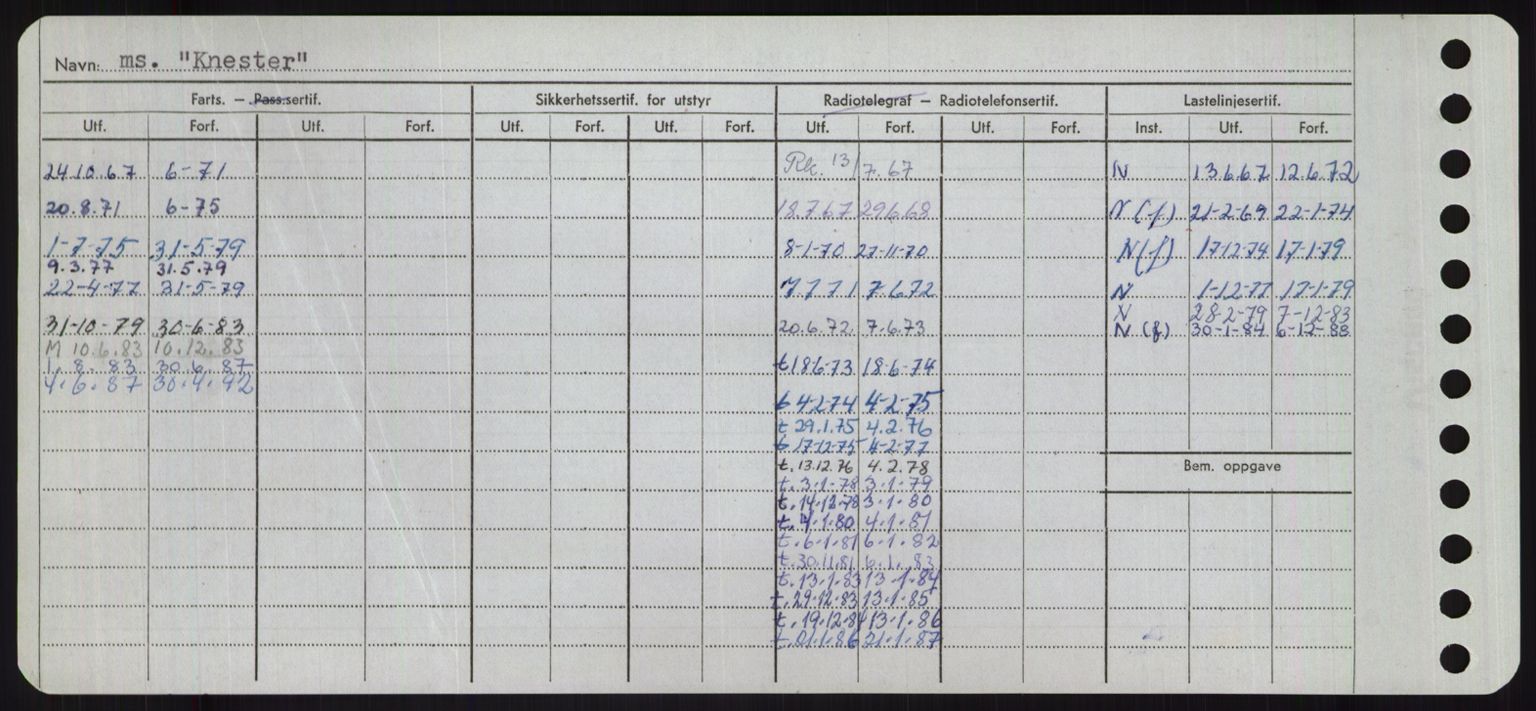 Navn: ms. "Knester"
Farts. — Pass.sertif. Sikkerhetssertif. for utstyr Radiotelegraf — Radiotelefonsertif. Lastelinjesertif.
Utf. Forf. Utf. Forf. Utf. Forf. Utf. Forf. Utf. Forf. Utf. Forf. Inst. Utf. Forf.
24.10.67 6-71 Rk. 13/7.67 N 13.6.67 12.6.72
20.8.71 6-75 18.7.67 29.6.68 N (f) 21-2-69 22-1-74
1-7-75 31-5-79 8-1-70 27-11-70 N(f) 17-12-74 17-1-79
9.3.77 31.5.79
22-4-77 31-5-79 7 7 71 7.6.72 N 1-12-77 17-1-79
N 28-2-79 7-12-83
31-10-79 30-6-83 20.6.72 7.6.73 N (f) 30-1-84 6-12-88
M 10.6.83 10.12.83
1.8.83 30.6.87 t 18.6-73 18.6-74
4.6.87 30.4.92
t 4-2-74 4-2-75
t 29.1.75 4.2.76
t 17-12-75 4-2-77
t. 13.12.76 4.2.78 Bem. oppgave
t. 3-1-78 3-1-79
t. 14-12-78 3-1-80
t. 4-1-80 4-1-81
t. 6-1-81 6-1-82
t. 30.11.81 6.1.83
t. 13-1-83 13-1-84
t. 29-12-83 13-1-85
t. 19-12-84 13-1-86
t. 21-1-86 21-1-87